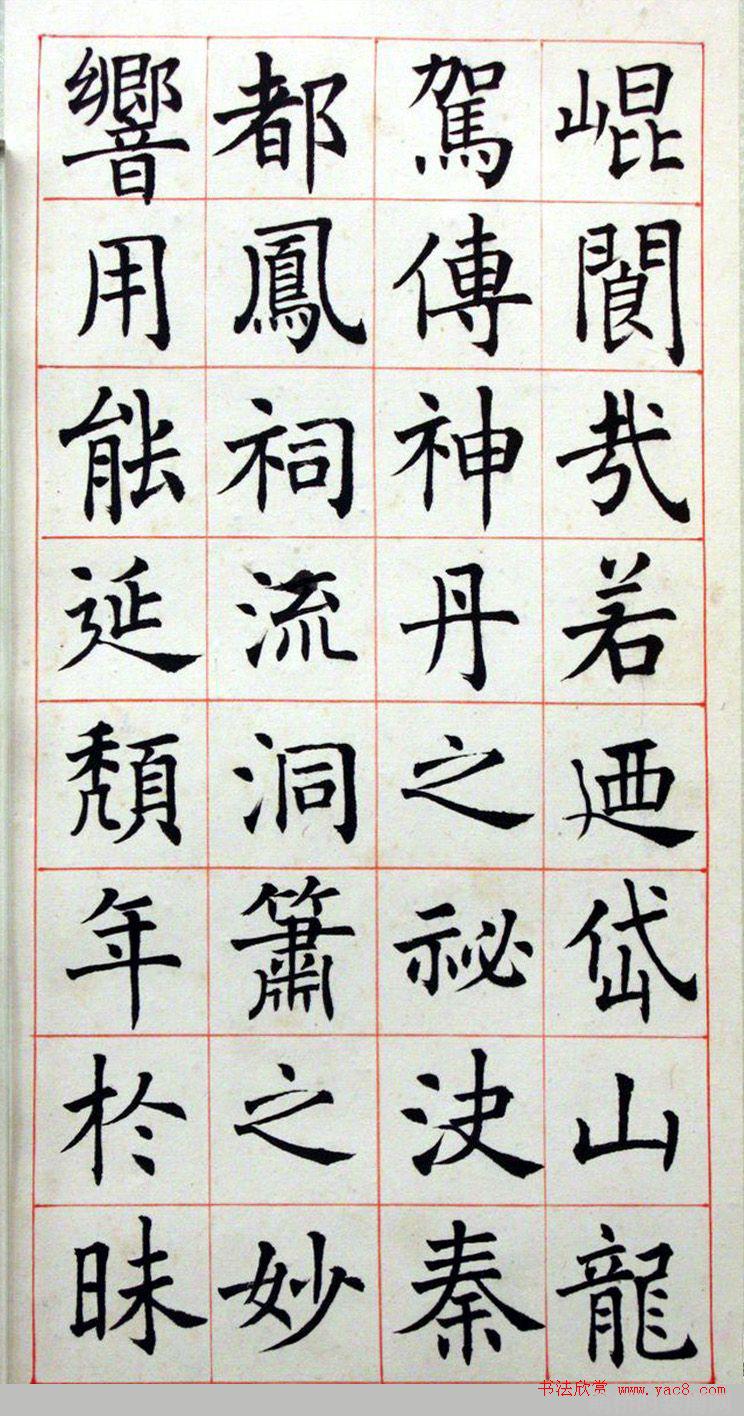 崐閬哉若迺岱山龍
駕傳神丹之祕決秦
都鳳祠流洞簫之妙
響用能延頽年於昧
书法欣赏 www.yac8.com